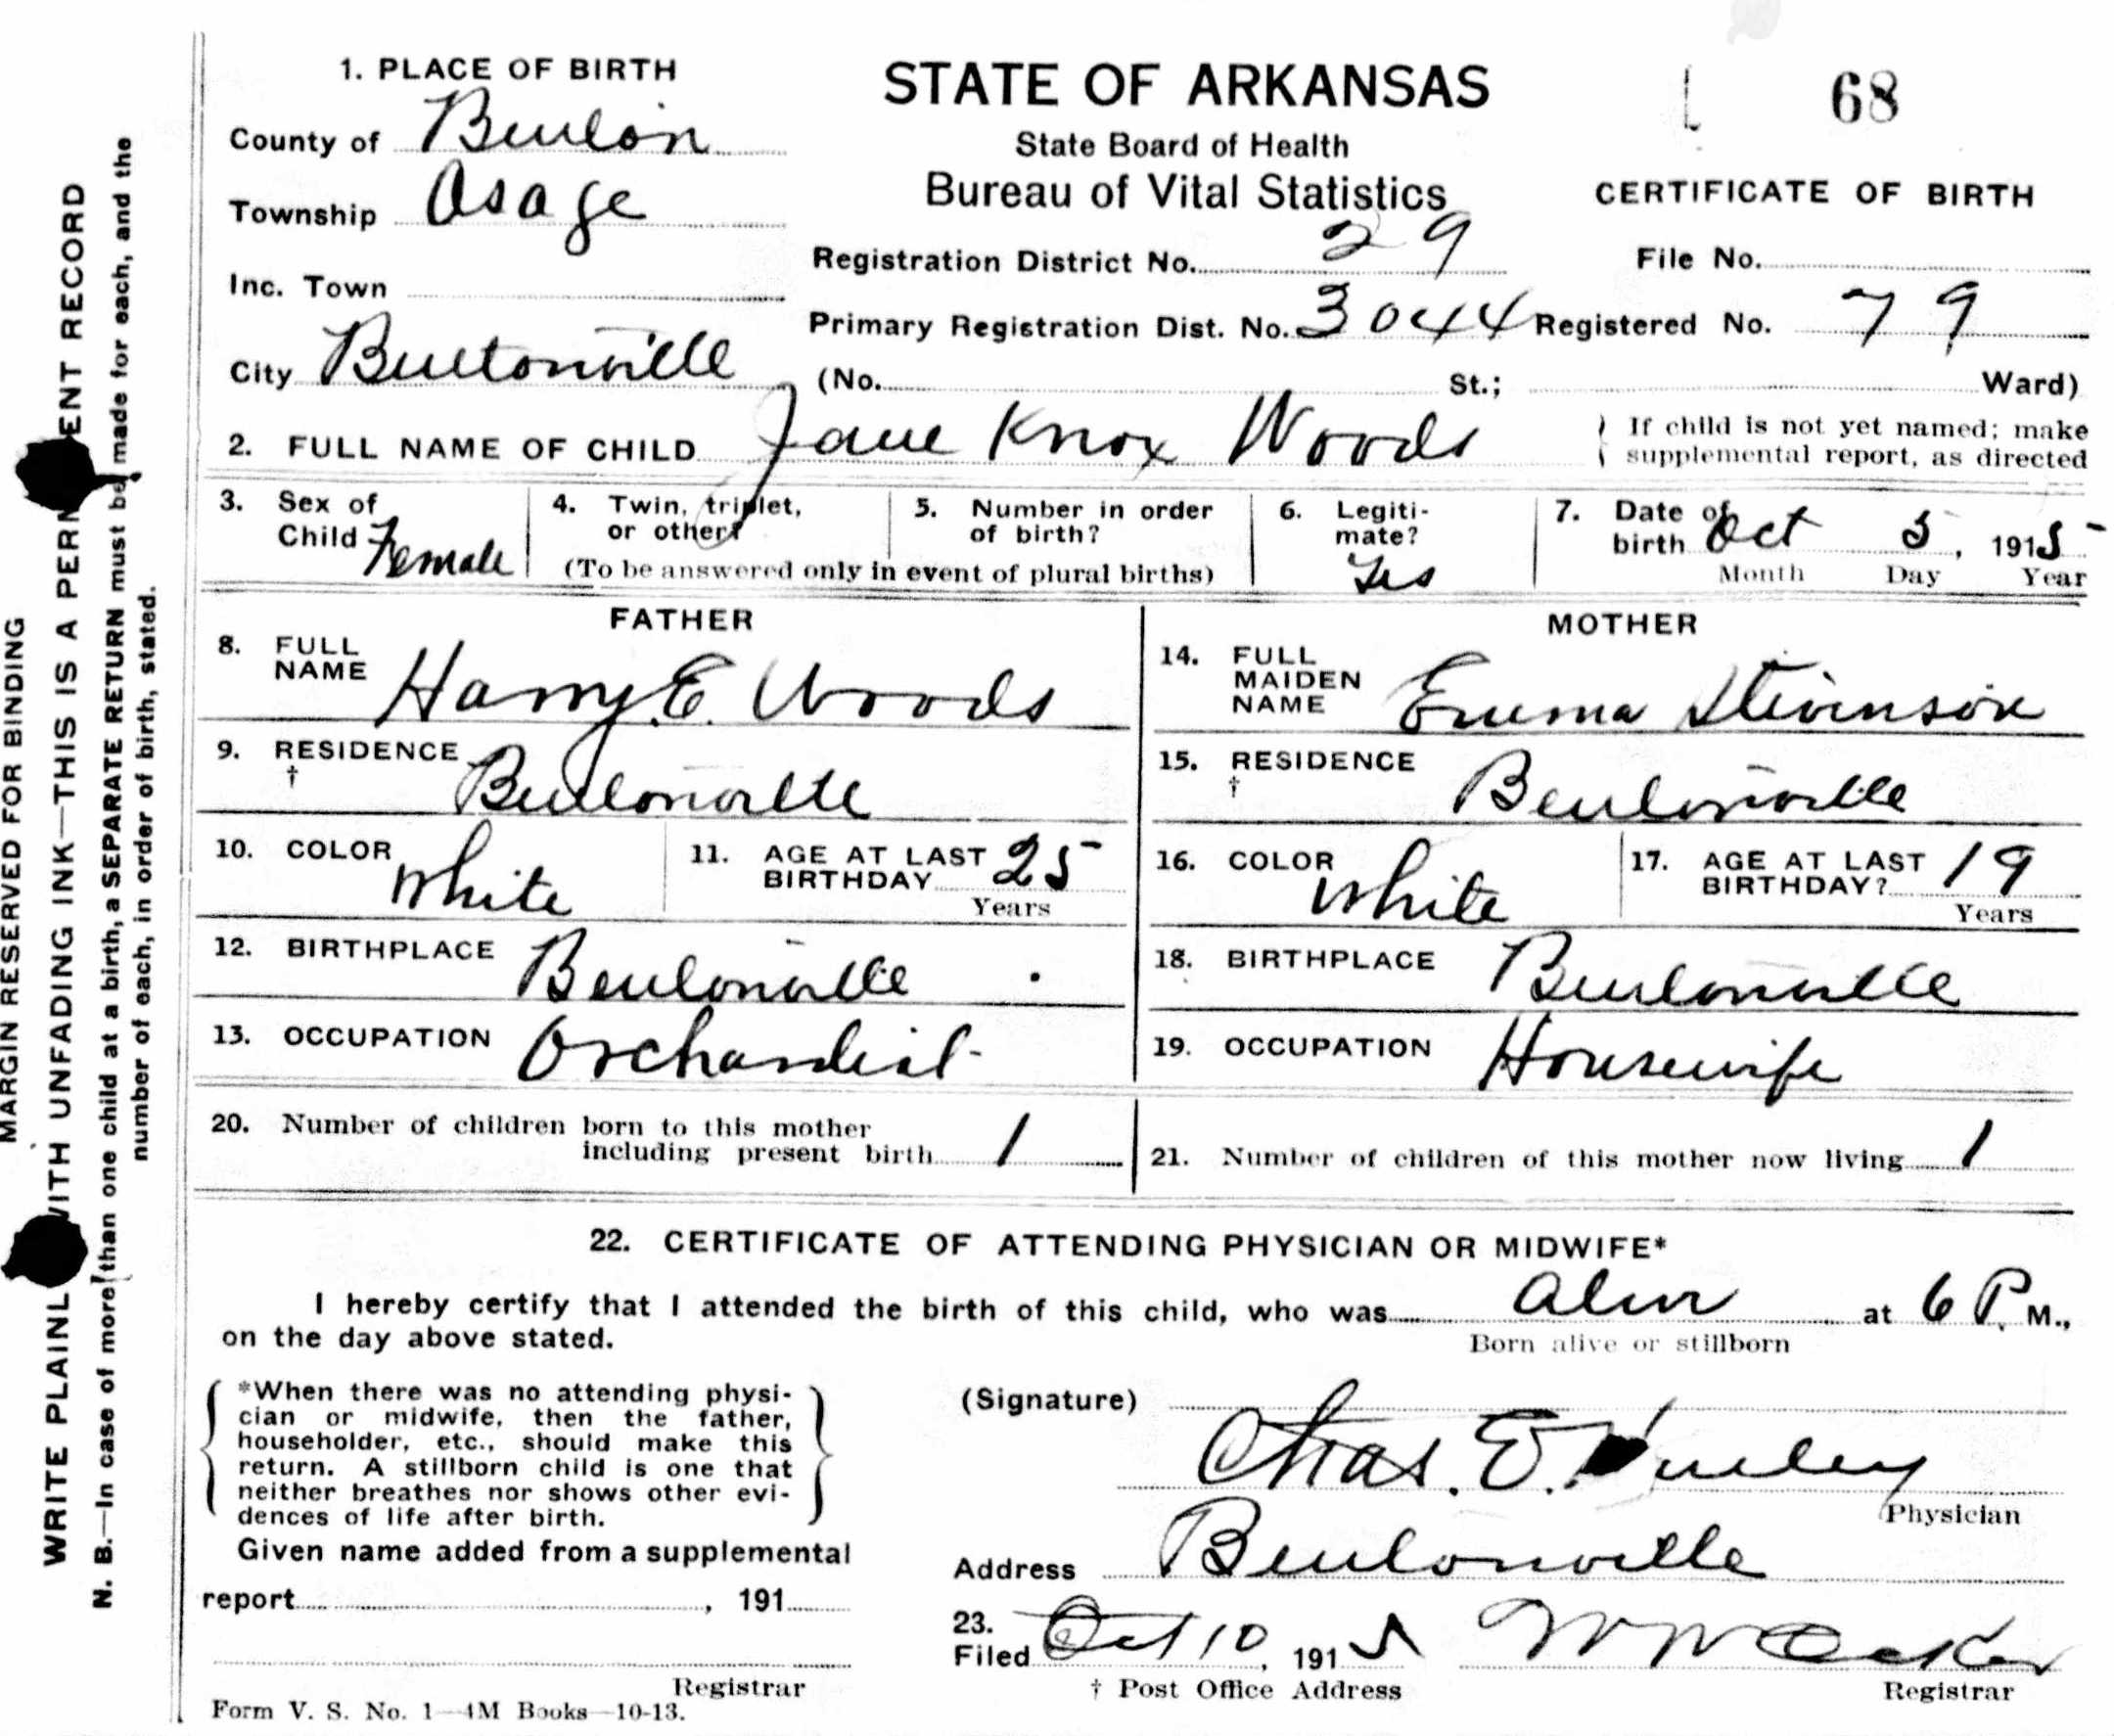 1. PLACE OF BIRTH
County of Benton
Township Osage
Inc. Town
City Bentonville
STATE OF ARKANSAS
State Board of Health
Bureau of Vital Statistics
68
CERTIFICATE OF BIRTH
Registration District No. 29
File No.
Primary Registration Dist. No. 3044 Registered No. 79
(No. St.; Ward)
2. FULL NAME OF CHILD Jane Knox Woods
If child is not yet named; make
supplemental report, as directed
3. Sex of Child Female
4. Twin, triplet, or other?
5. Number in order of birth?
(To be answered only in event of plural births)
6. Legitimate? Yes
7. Date of birth Oct 5, 1915
Month Day Year
FATHER
8. FULL NAME Harry E. Woods
9. RESIDENCE † Bentonville
10. COLOR White
11. AGE AT LAST BIRTHDAY 25 Years
12. BIRTHPLACE Bentonville
13. OCCUPATION Orchardist
MOTHER
14. FULL MAIDEN NAME Emma Stevenson
15. RESIDENCE † Bentonville
16. COLOR White
17. AGE AT LAST BIRTHDAY? 19 Years
18. BIRTHPLACE Bentonville
19. OCCUPATION Housewife
20. Number of children born to this mother
including present birth 1
21. Number of children of this mother now living 1
22. CERTIFICATE OF ATTENDING PHYSICIAN OR MIDWIFE*
I hereby certify that I attended the birth of this child, who was alive at 6 P. M.,
Born alive or stillborn
on the day above stated.
*When there was no attending physi-
cian or midwife, then the father,
householder, etc., should make this
return. A stillborn child is one that
neither breathes nor shows other evi-
dences of life after birth.
Given name added from a supplemental
report , 191
Registrar
Form V. S. No. 1—4M Books—10-13.
(Signature)
Chas. E. Hurley
Physician
Address Bentonville
23.
Filed Oct 10, 1915
† Post Office Address
Registrar
MARGIN RESERVED FOR BINDING
WRITE PLAINL WITH UNFADING INK—THIS IS A PERM ENT RECORD
N. B.—In case of more than one child at a birth, a SEPARATE RETURN must be made for each, and the
number of each, in order of birth, stated.